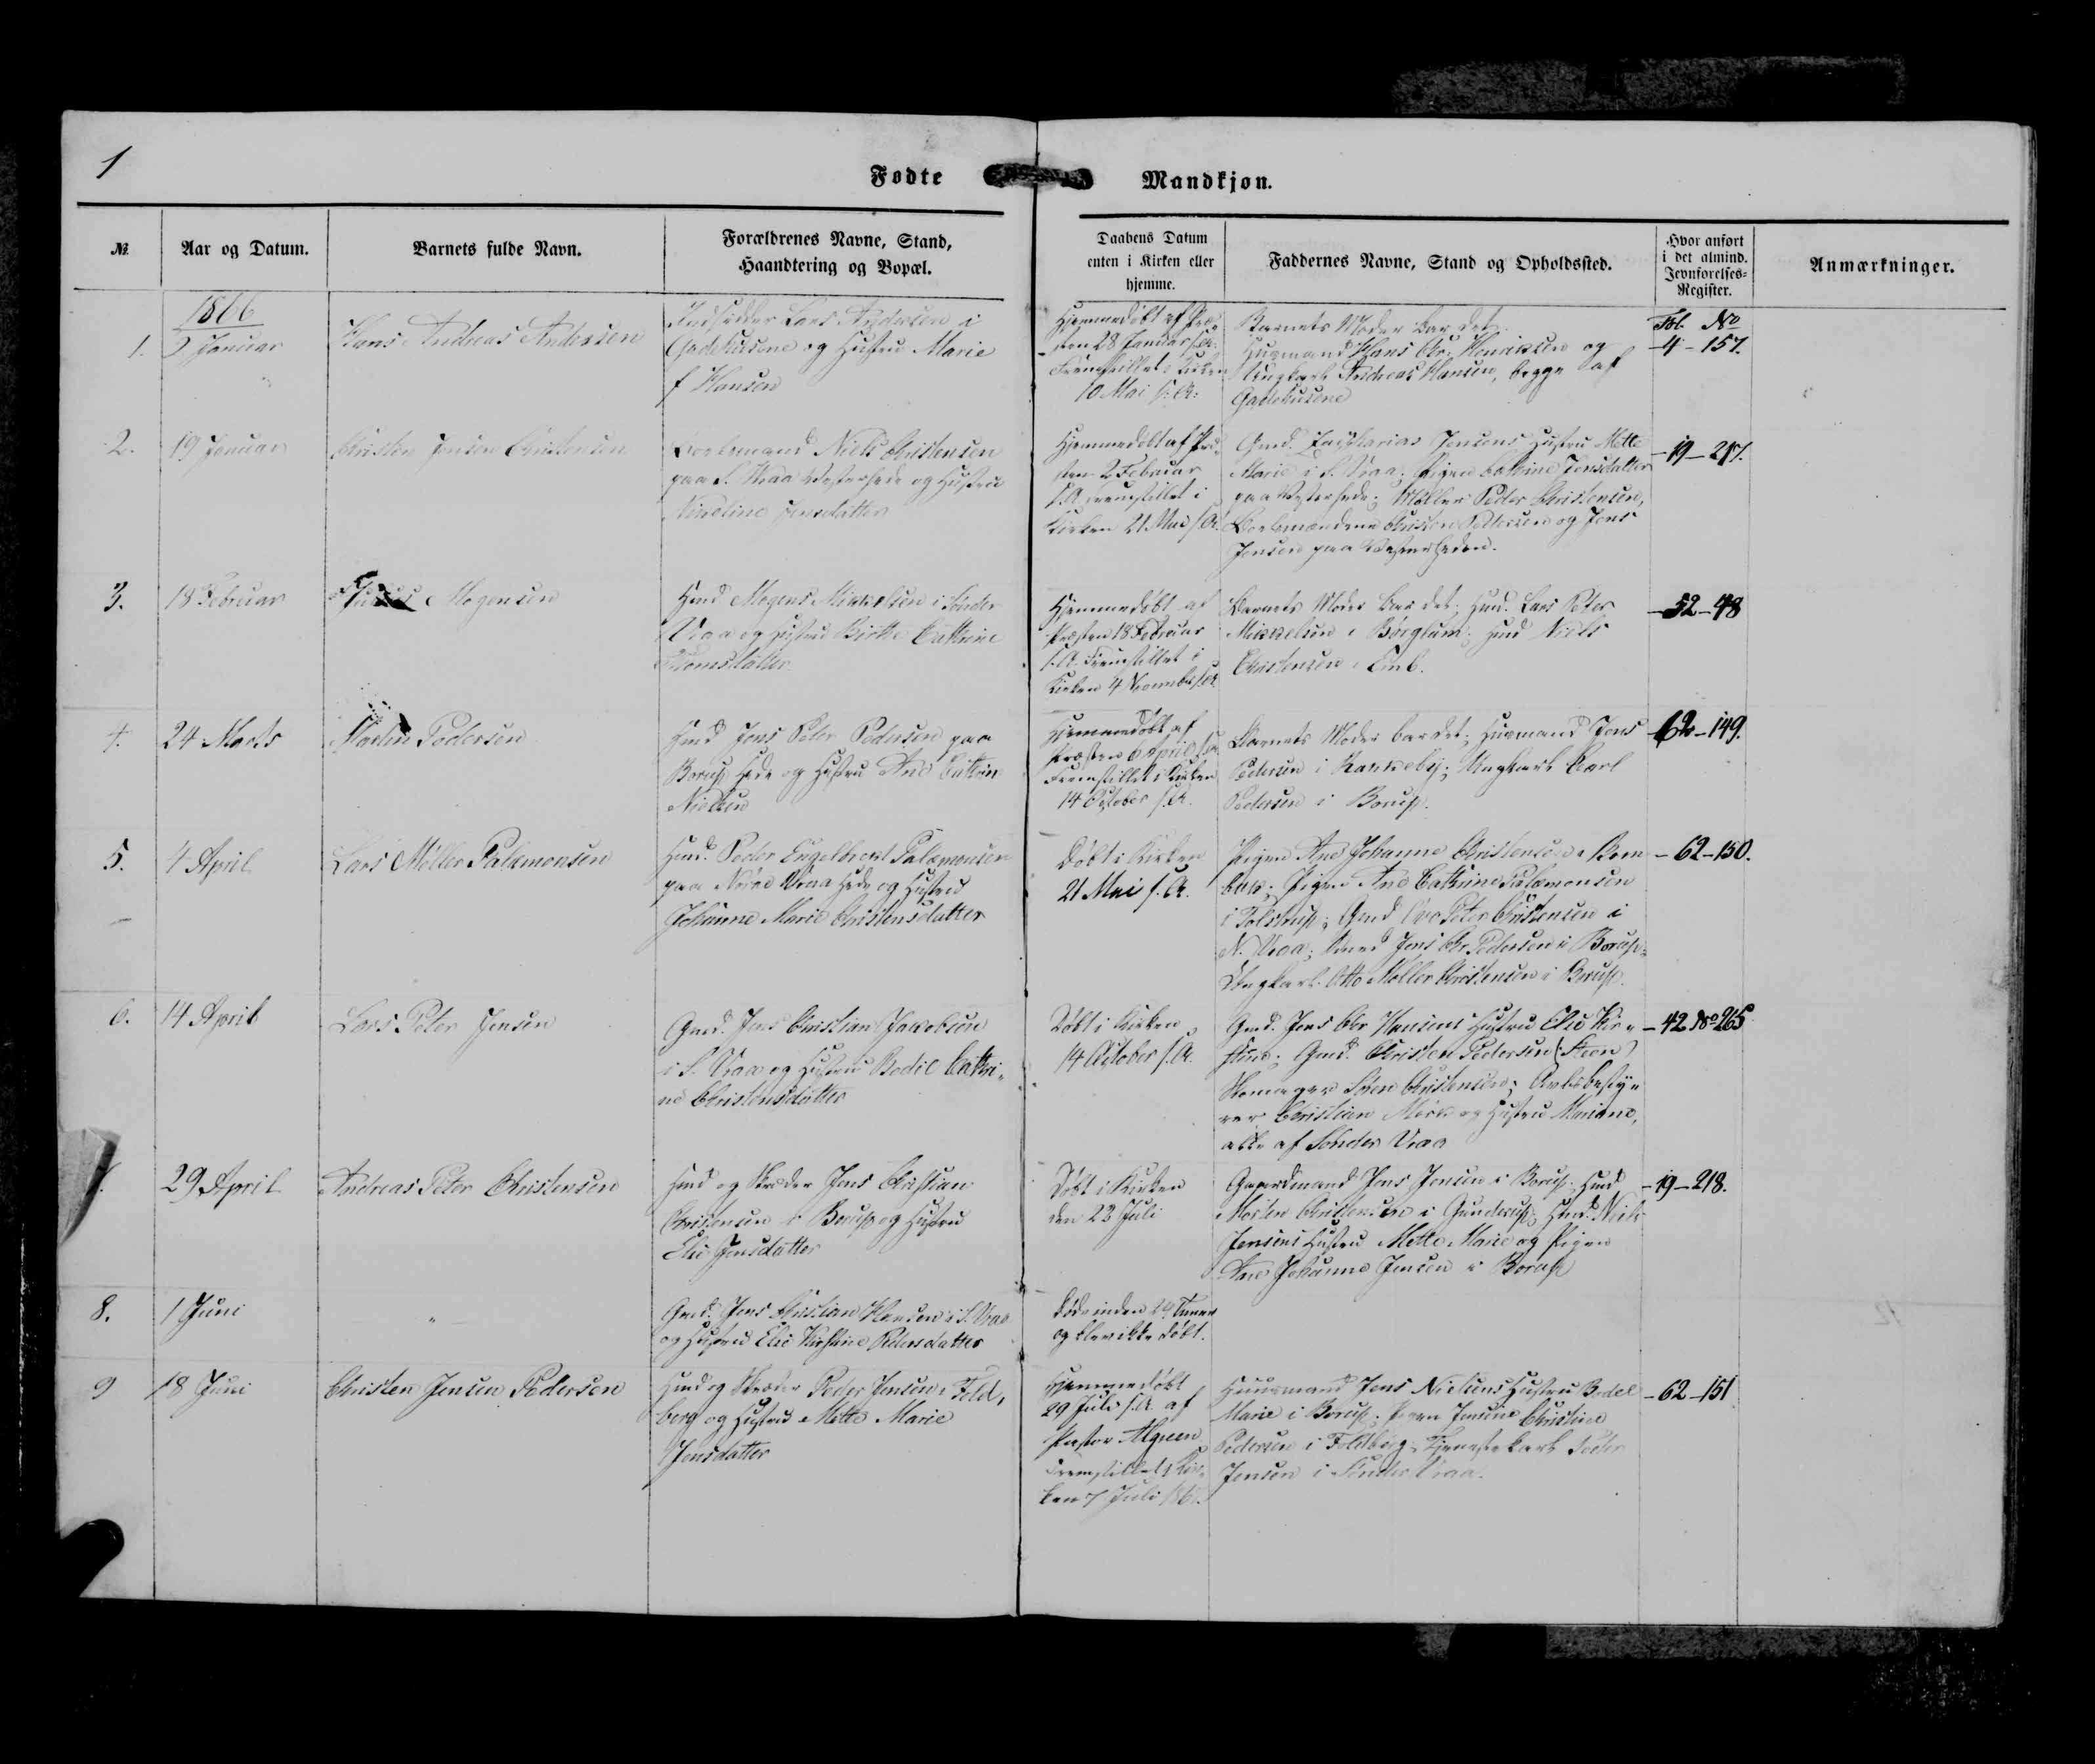 1
Fødte
Mandkjøn.
№
Aar og Datum.
Barnets fulde Navn.
Forældrenes Navne, Stand,
Haandtering og Bopæl.
Daabens Datum
enten i Kirken eller
hjemme.
Faddernes Navne, Stand og Opholdssted.
Hvor anført
i det almind.
Jevnførelses-
Register.
Anmærkninger.
1866
1.
Januar
Hans Andreas Andersen
Indsidder Lars Andersen i
Gadehusene og Hustru Marie
f Hansen
Hjemmedøbt af Præ-
sten 28 Januar s.A.
Fremstillet i Kirken
10 Mai s. A.
Barnets Moder bar det.
Huusmand Hans Chr. Henriksen og
Ungkarl Andreas Hansen, begge af
Gadehusene
Fol. No
-4-157.
2.
19 Januar
Christen Jensen Christensen
Boelsmand Niels Christensen
paa S. Vraa Vesterhede og Hustru
Nikoline Jensdatter
Hjemmedøbt af Præ-
sten 2 Februar
s.A. Fremstillet i
Kirken 21 Mai s.A.
Gmd. Zacharias Jensens Hustru Mette
Marie i S. Vraa; Pigen Cathrine Jensdatter
paa Vesterhede; Møller Peder Christensen,
Boelsmændene Christen Pedersen og Jens
Jensen paa Vesterheden.
-19-217.
3.
18 Februar
Mogensen
Hmd Mogens Mikkelsen i Sønder
Vraa og Hustru Birthe Cathrine
Thomsdatter
Hjemmedøbt af
Præsten 18 Februar
s.A. Fremstillet i
Kirken 4 November s.A.
Barnets Moder bar det; Hmd. Lars Peter
Mikkelsen i Børglum; Hmd Niels
Christensen i Emb.
-52-48
4.
24 Marts
Martin Pedersen
Hmd Jens Peter Pedersen paa
Borup Hede og Hustru Ane Cathrine
Nielsen
Hjemmedøbt af
Præsten 6 April s.A.
Fremstillet i Kirken
14 October s.A.
Barnets Moder bar det; Huusmand Jens
Pedersen i Rankeby; Ungkarl Carl
Pedersen i Borup.
-62-149.
5.
4 April
Lars Møller Palæmonsen
Hmd. Peder Engelbrect Palæmonsen
paa Nørre Vraa Hede og Hustru
Johanne Marie Christensdatter
Døbt i Kirken
21 Mai s.A.
Pigen Ane Johanne Christensen i Brem-
bak; Pigen Ane Cathrine Palæmonsen
i Tolstrup; Gmd Ove Peter Christensen i
N. Vraa; Gmd Jens Chr. Pedersen i Borup
Ungkarl Otto Møller Christensen i Borup.
-62-150.
6.
14 April
Lars Peter Jensen
Gmd. Jens Christian Jakobsen
i S. Vraa og Hustru Bodil Cathri-
ne Christensdatter
Døbt i Kirken
14 October s.A.
Gmd. Jens Chr Hansens Hustru Else Kir-
stine; Gmd. Christen Pedersen (Steen)
Skomager Søren Christensen; Avlsbesty-
rer Christian Mørk og Hustru Mariane,
alle af Sønder Vraa
-42 No 265
29 April
Andreas Peter Christensen
Hmd og Skræder Jens Christian
Christensen i Borup og Hustru
Else Jensdatter
Døbt i Kirken
den 22 Juli
Gaardmand Jens Jensen i Borup; Hmd
Morten Christensen i Gunderup; Hmd. Niels
Jensens Hustru Mette Marie og Pigen
Ane Johanne Jensen i Borup
-19-218.
8.
1 Juni
"
Gmd. Jens Christian Hansen i S. Vraa
og Hustru Else Kirstine Pedersdatter
Døde inden 24 Timer
og blev ikke døbt.
9
18 Juni
Christen Jensen Pedersen
Hmd og Skræder Peder Jensen i Fold-
berg og Hustru Mette Marie
Jensdatter
Hjemmedøbt
29 Juli s.A. af
Pastor Algreen
Fremstillet i Kir-
ken 7 Juli 1867.
Huusmand Jens Nielsens Hustru Bodel
Marie i Borup; Pigen Jensine Christine
Pedersen i Foldberg; Tjenestekarl Peder
Jensen i Sønder Vraa.
-62-151